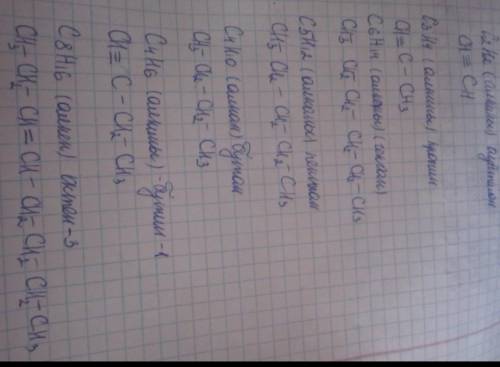 C2H2 (алкины) ацетилен
CH ≡ CH
C3H4 (алкины) пропин
CH ≡ C - CH3
C6H14 (алканы) (гексан)
CH3 CH2 CH2 - CH2 - CH2 - CH3
C5H12 (алканы) пентан
CH3 CH2 - CH2 - CH2 - CH3
C4H10 (алкан) бутан
CH3 CH2 - CH2 - CH3
C4H6 (алкины) - бутин - 1
CH ≡ C - CH2 - CH3
C8H16 (алкен) октен - 3
CH3 - CH2 - CH = CH - CH2 - CH2 - CH2 - CH3